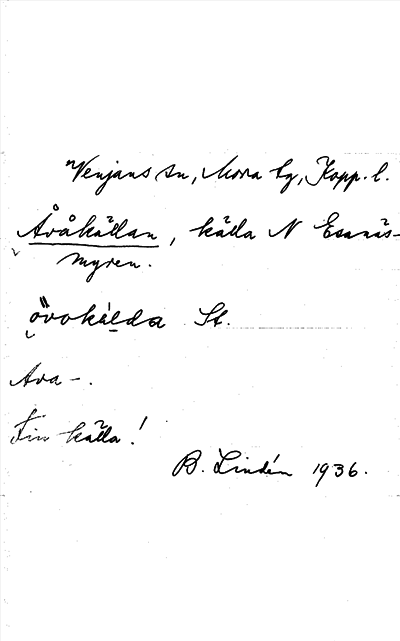 Venjans sn, Mora tg, Kopp. l.
Åråkällan, källa N Esanäs-
myren.
övokälda St.
Ava -.
Fin källa!
B. Lindén 1936.